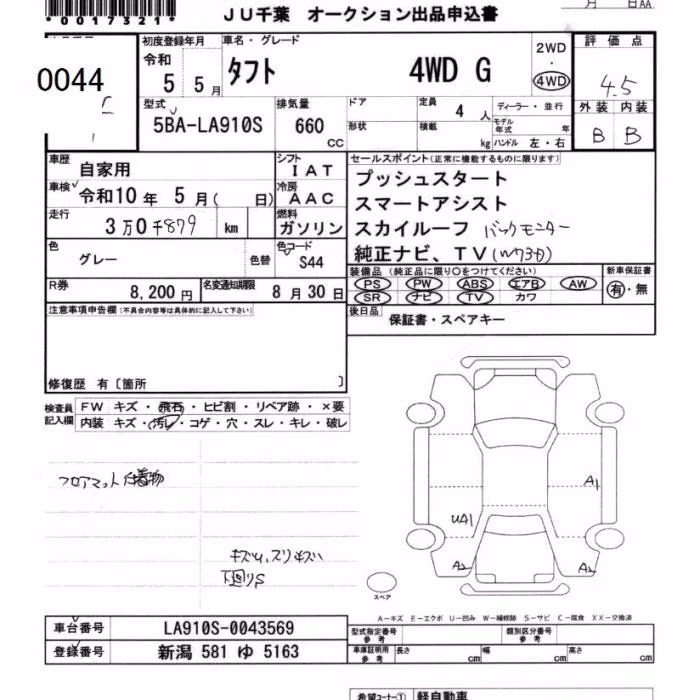 *0017321*
月 日AA
JU千葉 オークション出品申込書
0044
初度登録年月
令和
5 5月
車名・グレード
タフト 4WD G
2WD
・
4WD
評価点
4.5
外装 内装
B B
型式
5BA-LA910S
排気量
660
CC
ドア
定員 4 人
形状
積載 kg
ディーラー・並行
モデル年式 年
ハンドル 左・右
車歴
自家用
シフト
IAT
車検 令和10年 5月( 日)
冷房
AAC
走行
3万0千879 km
燃料
ガソリン
色
グレー
色替
色コード
S44
R券
8,200円
名変通知期限
8月30日
セールスポイント(正常に機能するものに限ります)
プッシュスタート
スマートアシスト
スカイルーフ バックモニター
純正ナビ、TV(W73D)
装備品(純正品に限り○をつけてください)
PS PW ABS エアB AW
SR ナビ TV カワ
新車保証書
有・無
後日品
保証書・スペアキー
注意事項申告欄(不具合内容等は具体的に記入して下さい)
修復歴 有〔箇所 〕
検査員
記入欄
FW キズ・飛石・ヒビ割・リペア跡・×要
内装 キズ・汚レ・コゲ・穴・スレ・キレ・破レ
フロアマット付着物
下廻りS
A1
UA1
A2
A2
スペア
A-キズ E-エクボ U-凹み W-補修跡 S-サビ C-腐食 XX-交換済
車台番号
LA910S-0043569
登録番号
新潟 581 ゆ 5163
型式指定番号
参考
類別区分番号
参考
車庫証明用
参考
長さ cm
幅 cm
高さ cm
希望コーナー① 軽自動車